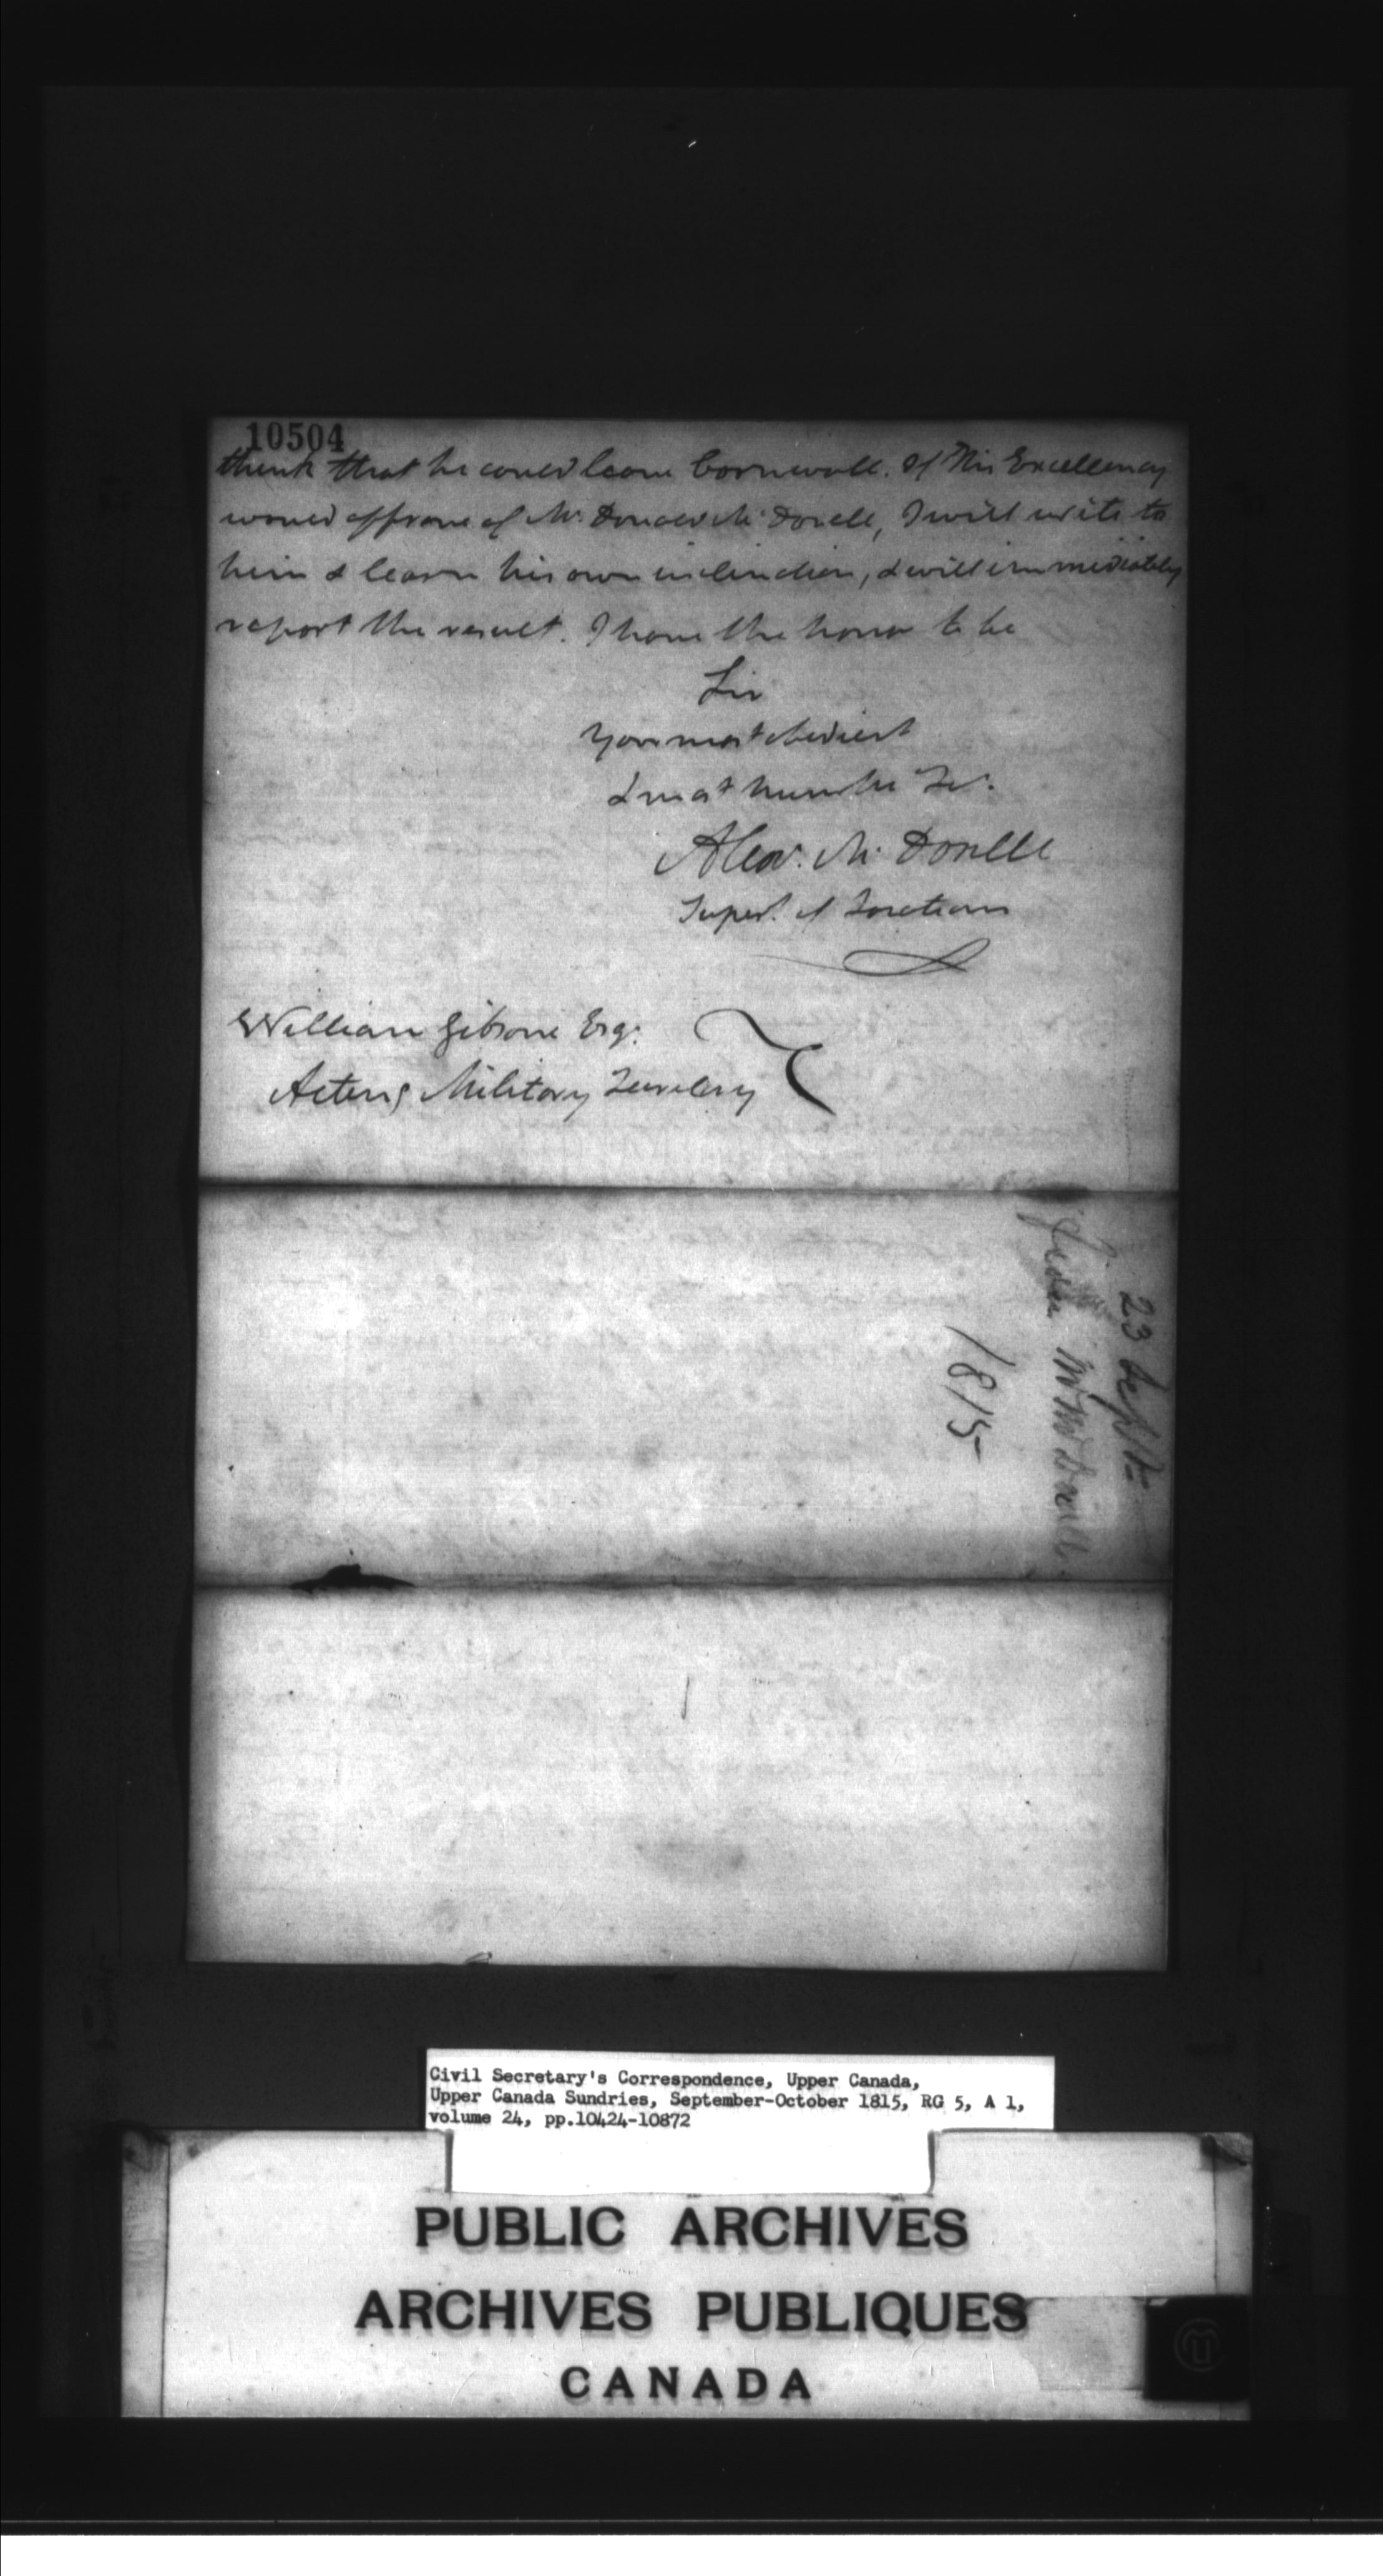 10504
think that he could leave Cornwall. If His Excellency
would approve of Mr. Donald McDonell, I will write to
him & learn his own inclination, & will immediately
report the result. I have the honor to be
Sir
Your most obedient
& most humble Ser.
Alexr. McDonell
Supert. of Locations
William Gibsone Esq.
Acting Military Secretary
23 Septr.
McDonell
1815
Civil Secretary's Correspondence, Upper Canada,
Upper Canada Sundries, September-October 1815, RG 5, A 1,
volume 24, pp.10424-10872
PUBLIC ARCHIVES
ARCHIVES PUBLIQUES
CANADA